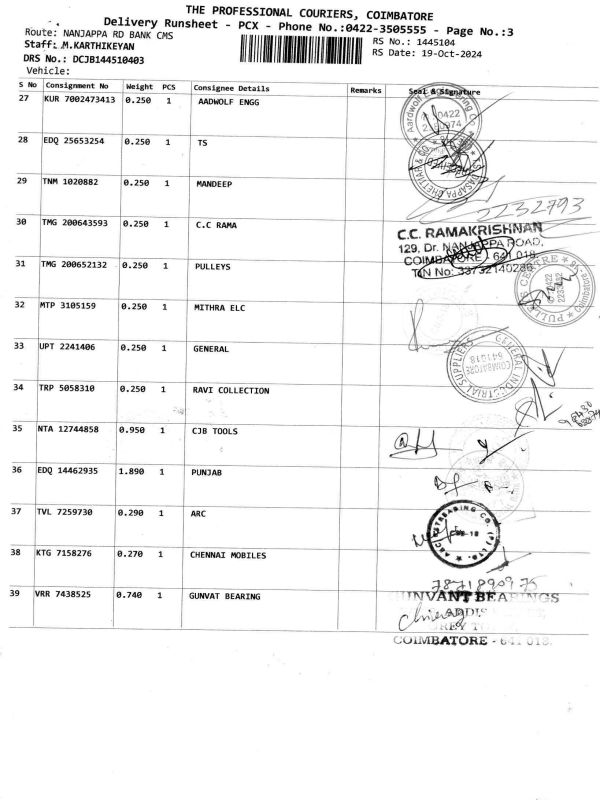 THE PROFESSIONAL COURIERS, COIMBATORE
Delivery Runsheet - PCX - Phone No.:0422-3505555 - Page No.:3
Route: NANJAPPA RD BANK CMS
RS No.: 1445104
Staff: M.KARTHIKEYAN
RS Date: 19-Oct-2024
DRS No.: DCJB144510403
Vehicle:
S No Consignment No Weight PCS Consignee Details Remarks Seal & Signature
27 KUR 7002473413 0.250 1 AADWOLF ENGG
28 EDQ 25653254 0.250 1 TS
29 TNM 1020882 0.250 1 MANDEEP
2232793
30 TMG 200643593 0.250 1 C.C RAMA
C.C. RAMAKRISHNAN
129, Dr. NANJAPPA ROAD,
COIMBATORE - 641 018.
TIN No: 33732140286
31 TMG 200652132 0.250 1 PULLEYS
PULLEYS CENTRE
32 MTP 3105159 0.250 1 MITHRA ELC
33 UPT 2241406 0.250 1 GENERAL
GENERAL INDUSTRIAL SUPPLIERS
COIMBATORE
641018
34 TRP 5058310 0.250 1 RAVI COLLECTION
35 NTA 12744858 0.950 1 CJB TOOLS
36 EDQ 14462935 1.890 1 PUNJAB
37 TVL 7259730 0.290 1 ARC
38 KTG 7158276 0.270 1 CHENNAI MOBILES
39 VRR 7438525 0.740 1 GUNVAT BEARING
GUNVANT BEARINGS
COIMBATORE - 641 018.